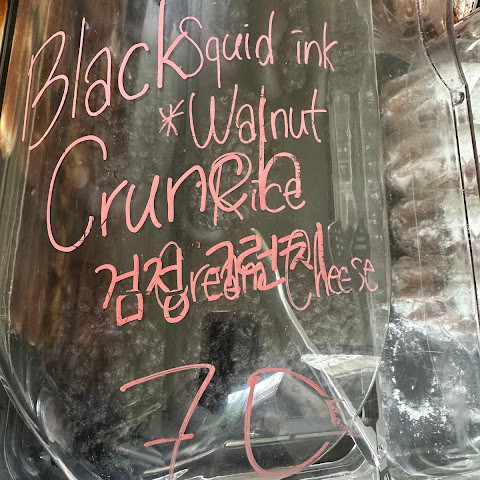 Black Squid ink
*Walnut
Crunch
Rice
검정 크런치
Cream Cheese
70